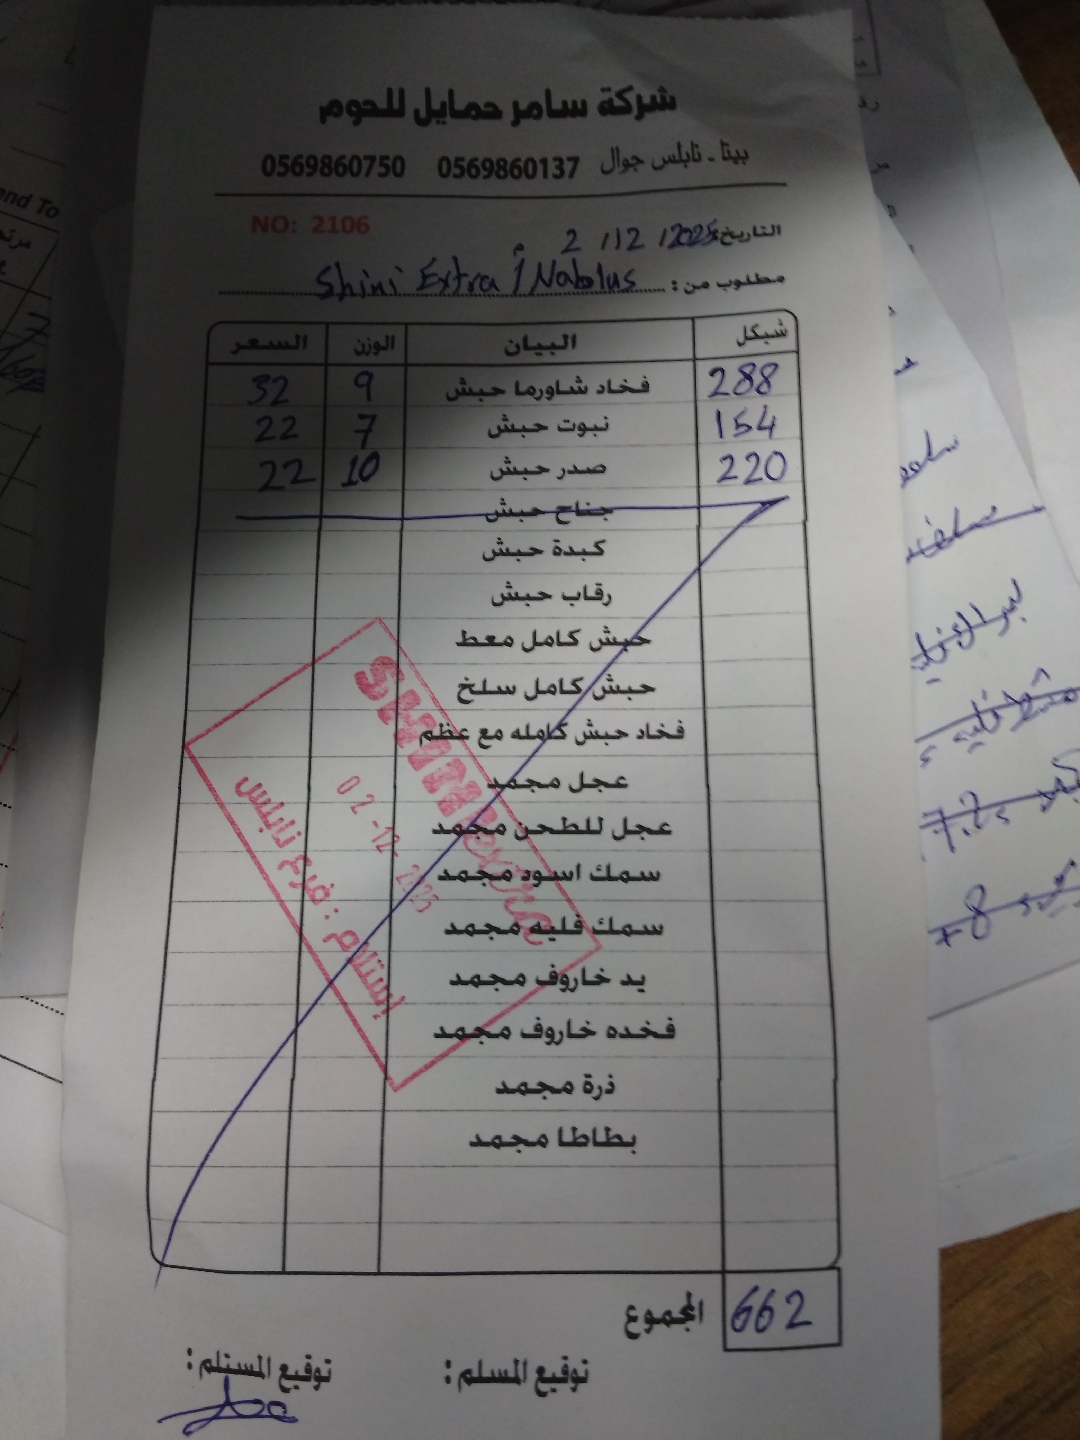 شركة سامر حمايل للحوم
بيتا - نابلس جوال 0569860137 0569860750
NO: 2106
التاريخ: 2 / 12 / 2025 م
مطلوب من: Shini Extra / Nablus
شيكل البيان الوزن السعر
288 فخاد شاورما حبش 9 32
154 نبوت حبش 7 22
220 صدر حبش 10 22
جناح حبش
كبدة حبش
رقاب حبش
حبش كامل معط
حبش كامل سلخ
فخاد حبش كامله مع عظم
عجل مجمد
عجل للطحن مجمد
سمك اسود مجمد
سمك فليه مجمد
يد خاروف مجمد
فخده خاروف مجمد
ذرة مجمد
بطاطا مجمد
SHINI extra
02-12-2025
إستلام : فرع نابلس
المجموع 662
توقيع المسلم :
توقيع المستلم :
end To